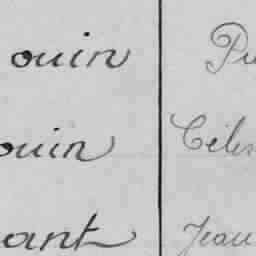 ouin Pi
ouin Céles
ant Jean